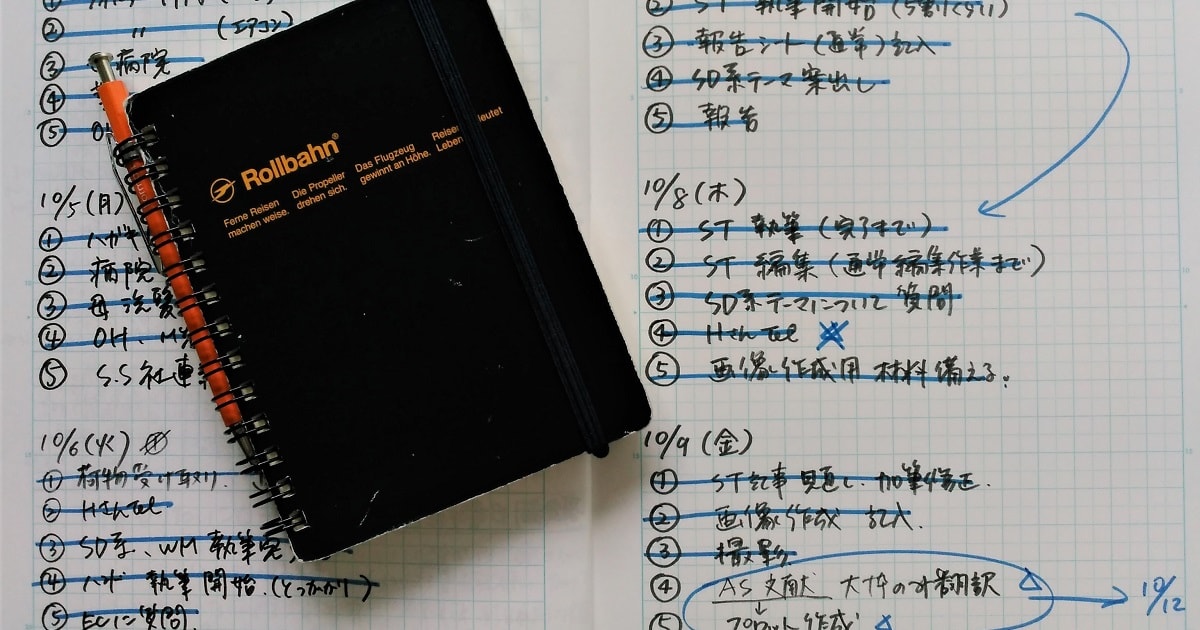 ②　〃　(エアコン)
③　病院
④
⑤ OH
10/5(月)
① ハガキ
② 病院
③ 母 洗髪
④ OH、
⑤ S.S社連
10/6(火)
① 荷物受け取り.
② HさんTel
③ SD系、WM 執筆
④ 執筆開始.(とっかかり)
⑤ ECに質問.
Rollbahn®
Ferne Reisen Die Propeller Das Flugzeug Reisen
machen weise. drehen sich. gewinnt an Höhe. Leben
② ST 執筆開始
③ 報告シート(通常)記入
④ SD系テーマ案出し
⑤ 報告
10/8(木)
① ST 執筆(完了まで)
② ST 編集(通常編集作業まで)
③ SD系テーマについて 質問
④ HさんTel
⑤ 画像作成用 材料備える。
10/9(金)
① ST記事見直し.加筆修正.
② 画像作成 記入.
③ 撮影
④ AS文献 大体の翻訳 △ → 10/12
⑤ プロット作成